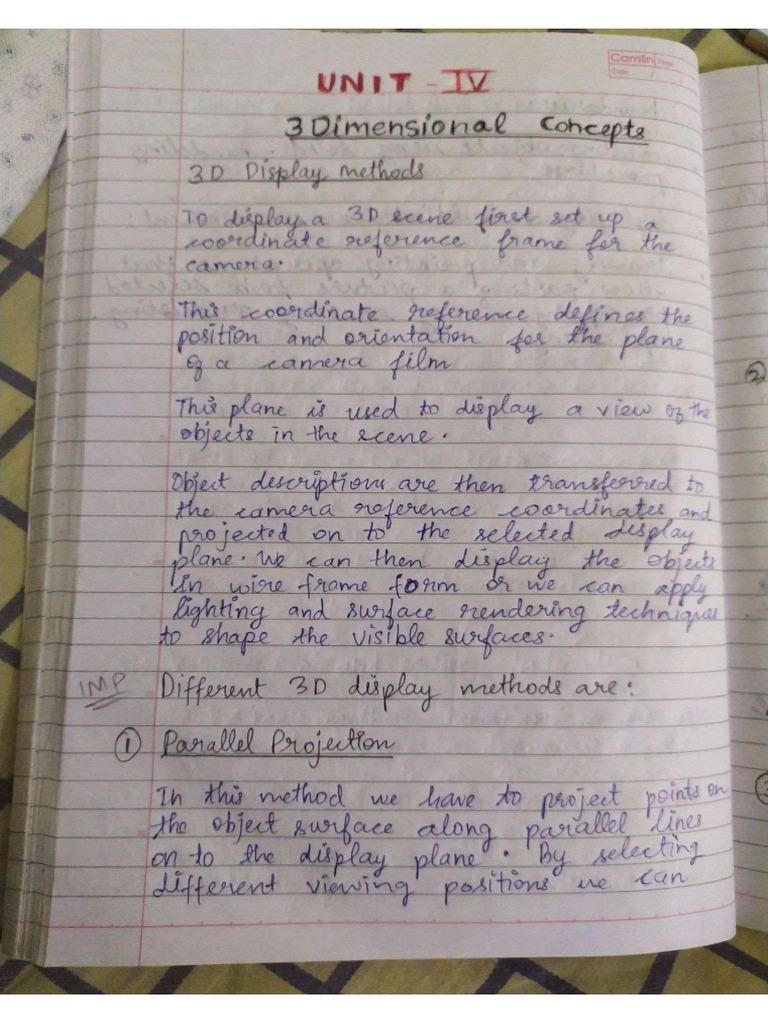 Camlin Page
Date
UNIT - IV
3 Dimensional Concepts
3D Display methods
To display a 3D scene first set up a
coordinate reference frame for the
camera.
This coordinate reference defines the
position and orientation for the plane
of a camera film
This plane is used to display a view of the
objects in the scene.
Object descriptions are then transferred to
the camera reference coordinates and
projected on to the selected display
plane. We can then display the objects
in wire frame form or we can apply
lighting and surface rendering techniques
to shape the visible surfaces.
IMP Different 3D display methods are:
① Parallel Projection
In this method we have to project points on
the object surface along parallel lines
on to the display plane. By selecting
different viewing positions we can
②